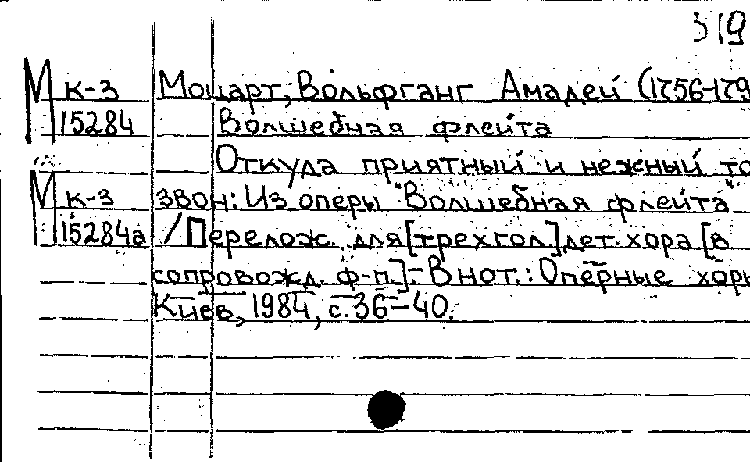 319
М к-3 Моцарт, Вольфганг Амадей (1756-179
15284 Волшебная флейта
Откуда приятный и нежный то
М к-3 звон: Из оперы "Волшебная флейта"
15284а / Перелож. для [трехгол.] дет. хора [в
сопровожд. ф-п.].- В нот.: Оперные хоры
Киев, 1984, с. 36-40.